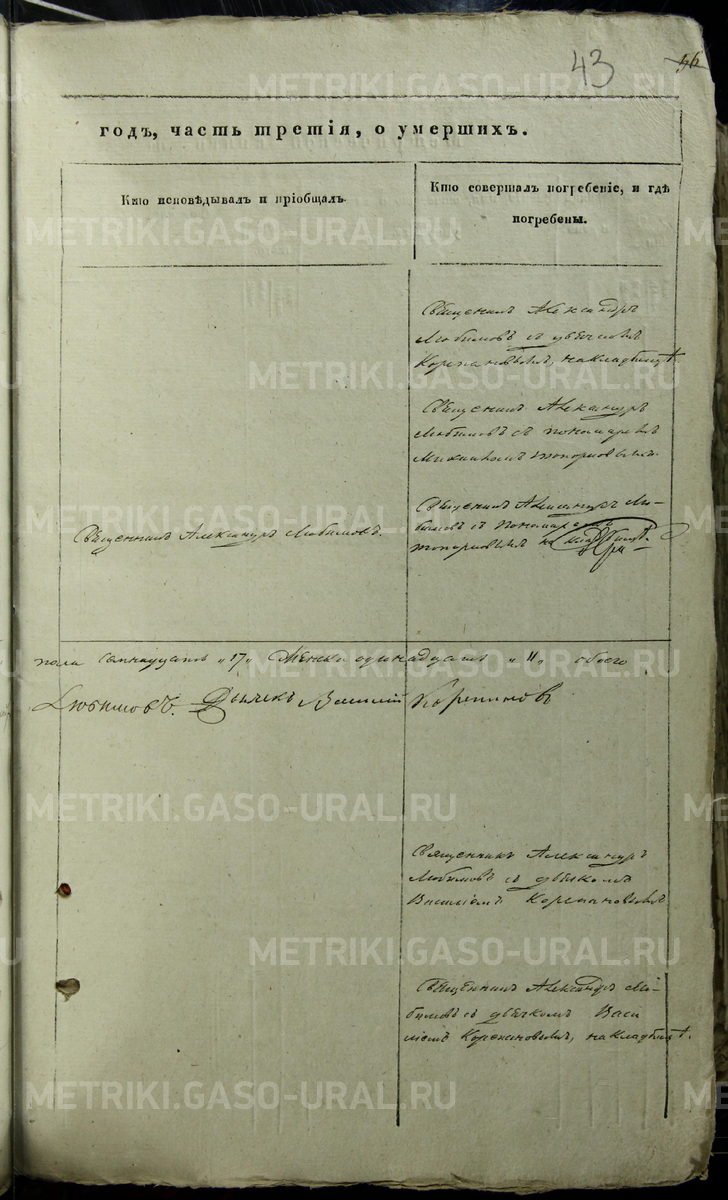 43
56
годъ, часть третія, о умершихъ.
Кто исповѣдывалъ и пріобщалъ.
Кто совершалъ погребеніе, и гдѣ
погребены.
Священникъ Александръ
Любимовъ съ дьячкомъ
Корепановымъ, на кладбищѣ.
Священникъ Александръ
Любимовъ съ пономаремъ
Священникъ Александръ Лю-
бимовъ съ пономаремъ
на кладбищѣ.
Священникъ Александръ Любимовъ.
пола семнадцать „17„ Женска одинадцать „11„ обоего
Любимовъ. Дьячекъ Василий Корепанов
Священникъ Александръ
Любимовъ съ дьякомъ
Василіемъ Корепановымъ
Священникъ Александръ Лю-
бимовъ съ дьячкомъ Васи
ліемъ Корепановымъ, на кладбищѣ.
METRIKI.GASO-URAL.RU